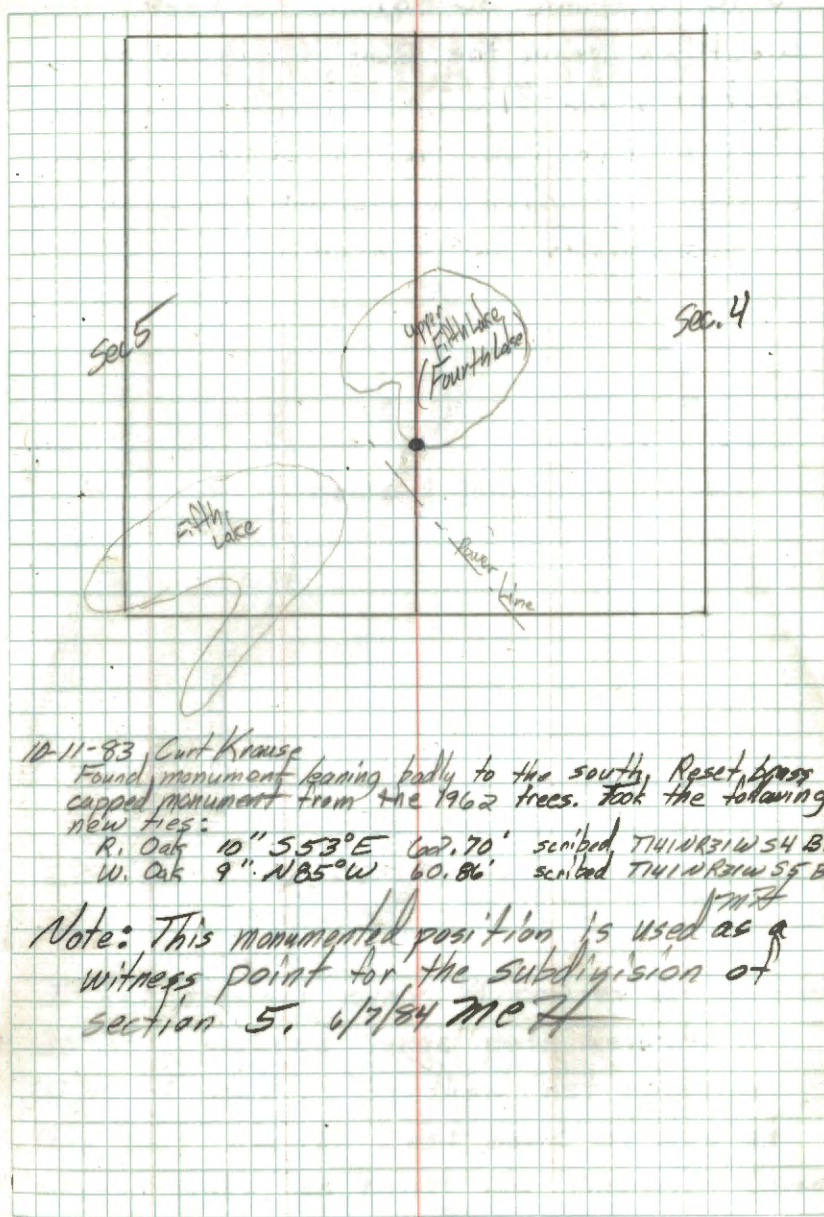 Sec 5
Sec. 4
Upper
Fifth Lake
(Fourth Lake)
Fifth
Lake
Power Line
10-11-83 Curt Krause
Found monument leaning badly to the south, Reset brass
capped monument from the 1962 trees. Took the following
new ties:
R. Oak 10" S53°E scribed T141NR31W S4 B
W. Oak 9" N85°W 60.86' scribed T141NR31W S5 B
Note: This monumented position is used as a
witness point for the subdivision of
section 5. 6/7/84 MeH